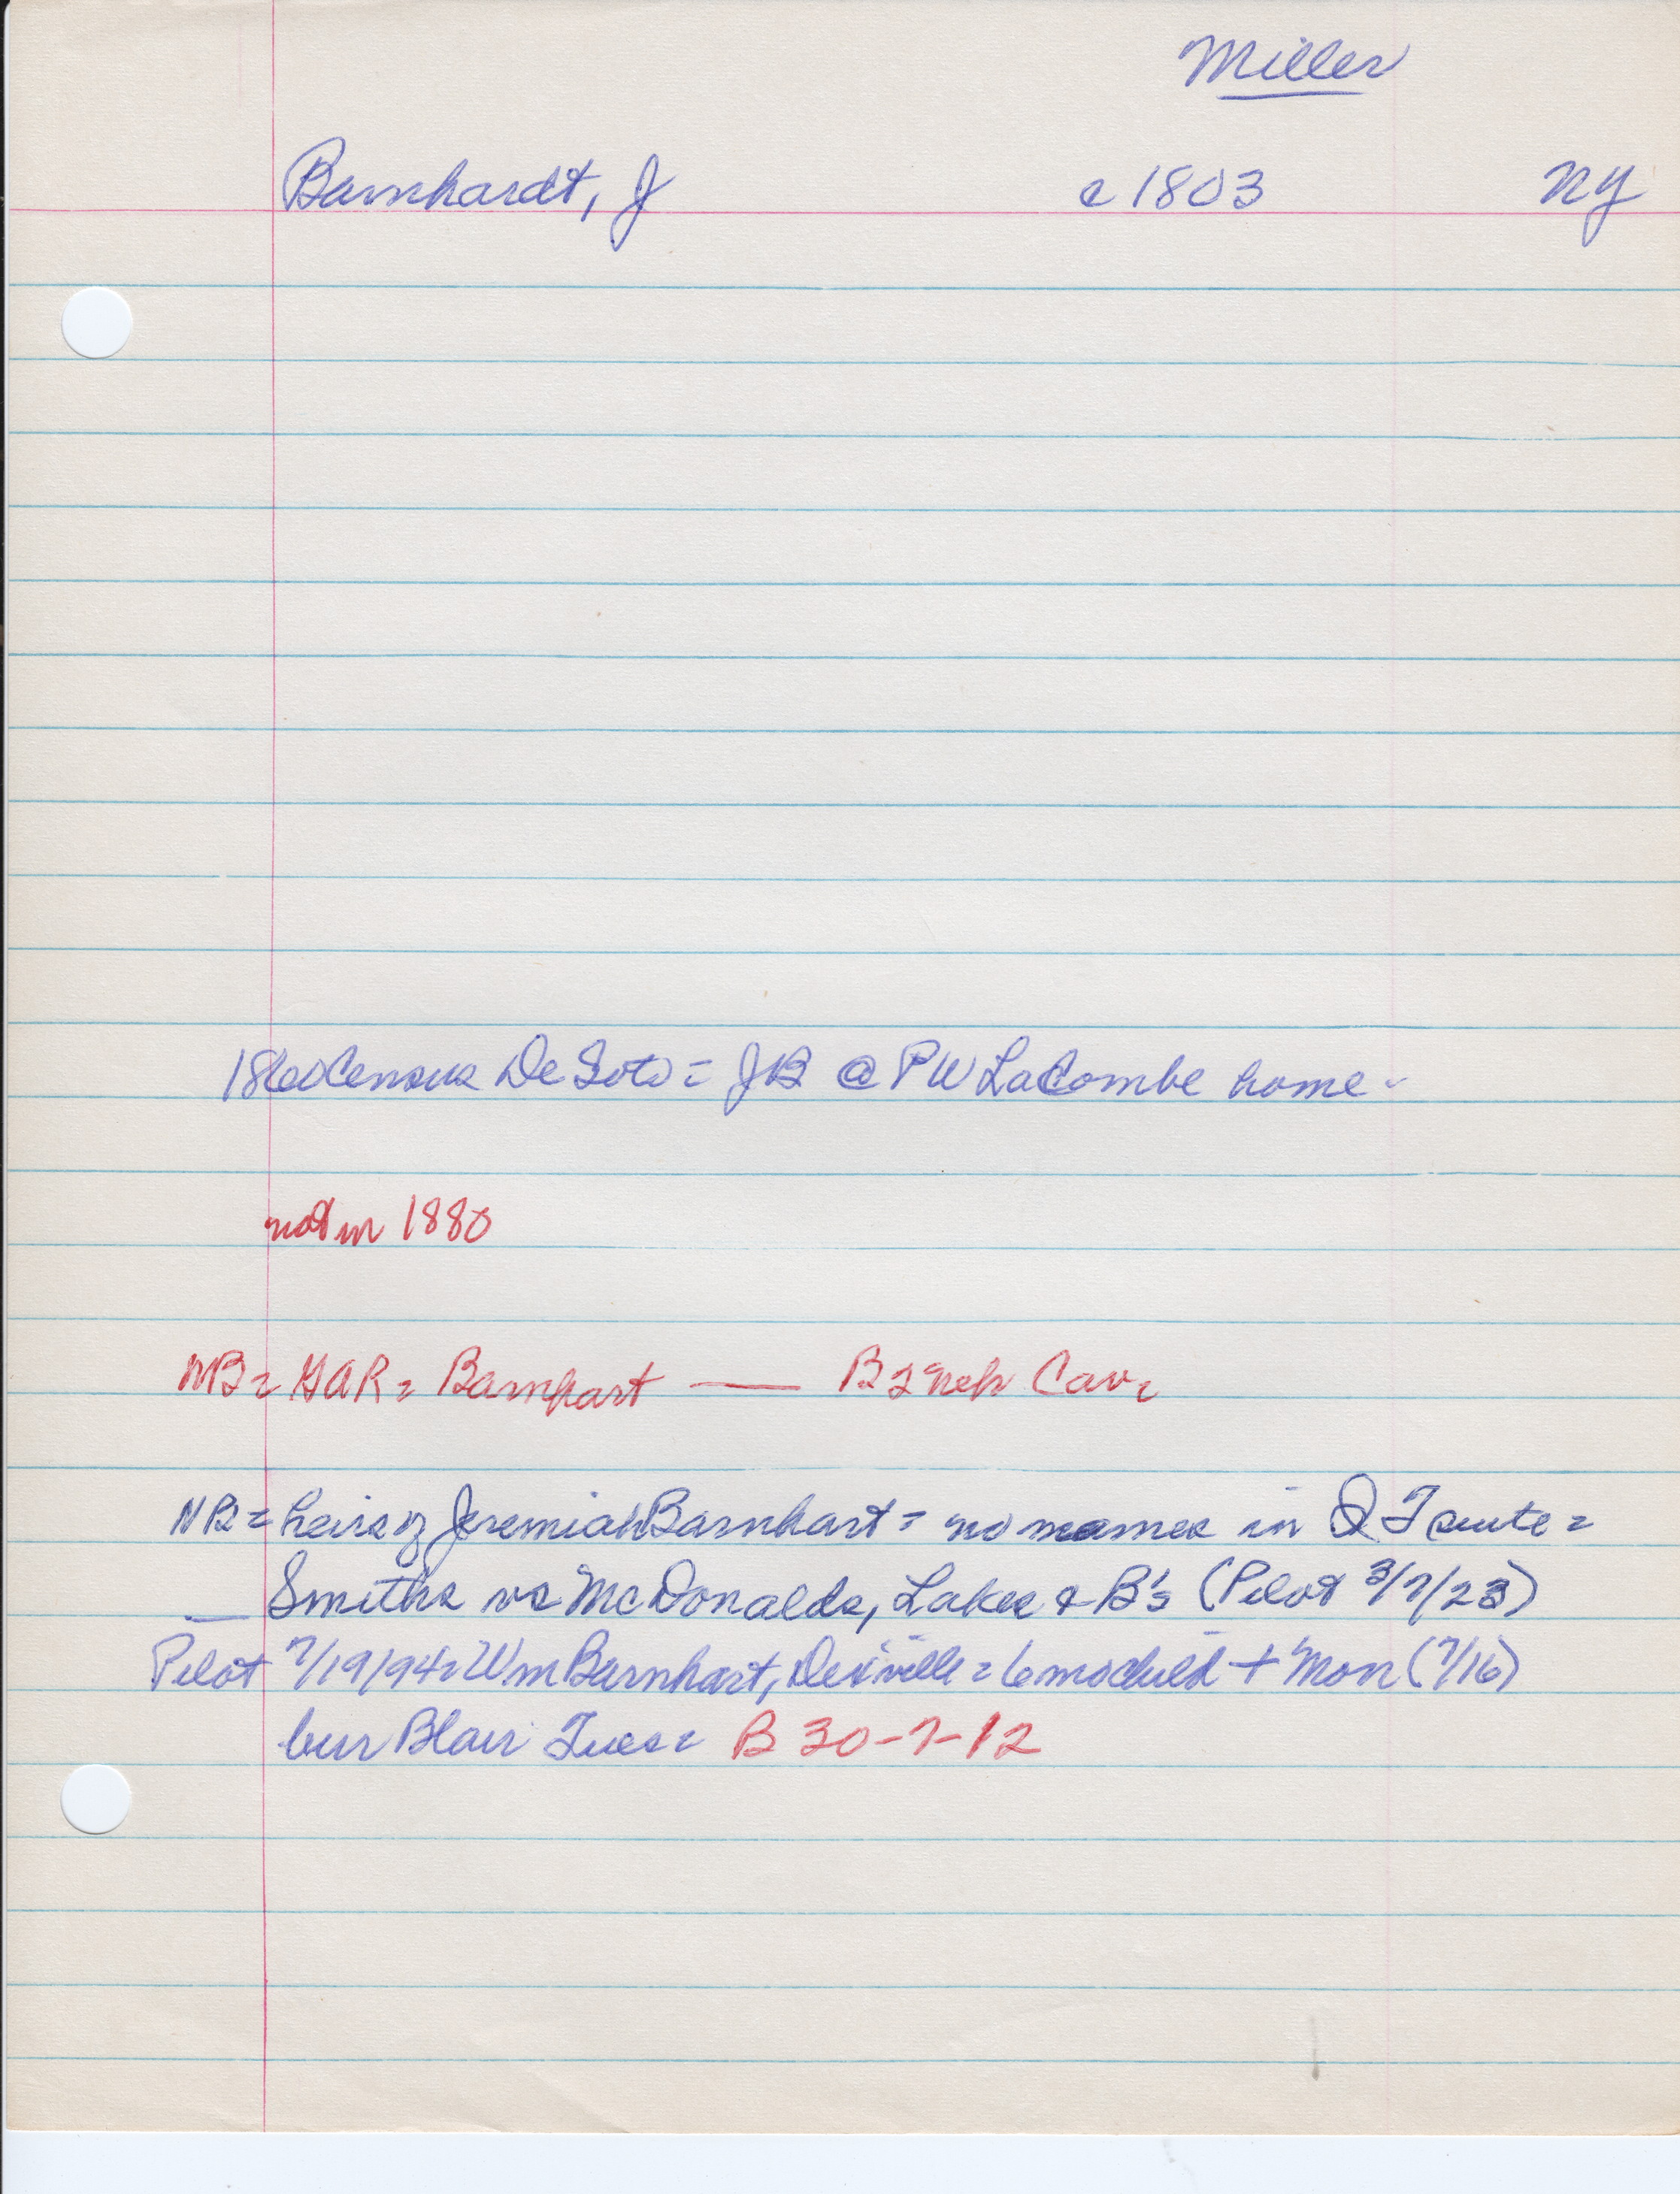 Miller
Barnhardt, J c 1803 NY
1860 Census DeSoto = JB @ PW LaCombe home -
not in 1880
NB = GAR = Barnhart — B 2 Neb Cav =
NB = heirs of Jeremiah Barnhart = no names in QT suite =
— Smiths vs McDonalds, Lakes & B's (Pilot 3/7/23)
Pilot 7/19/94 = Wm Barnhart, = 6 mo child + Mon (7/16)
bur Blair Tues = B 30-7-12